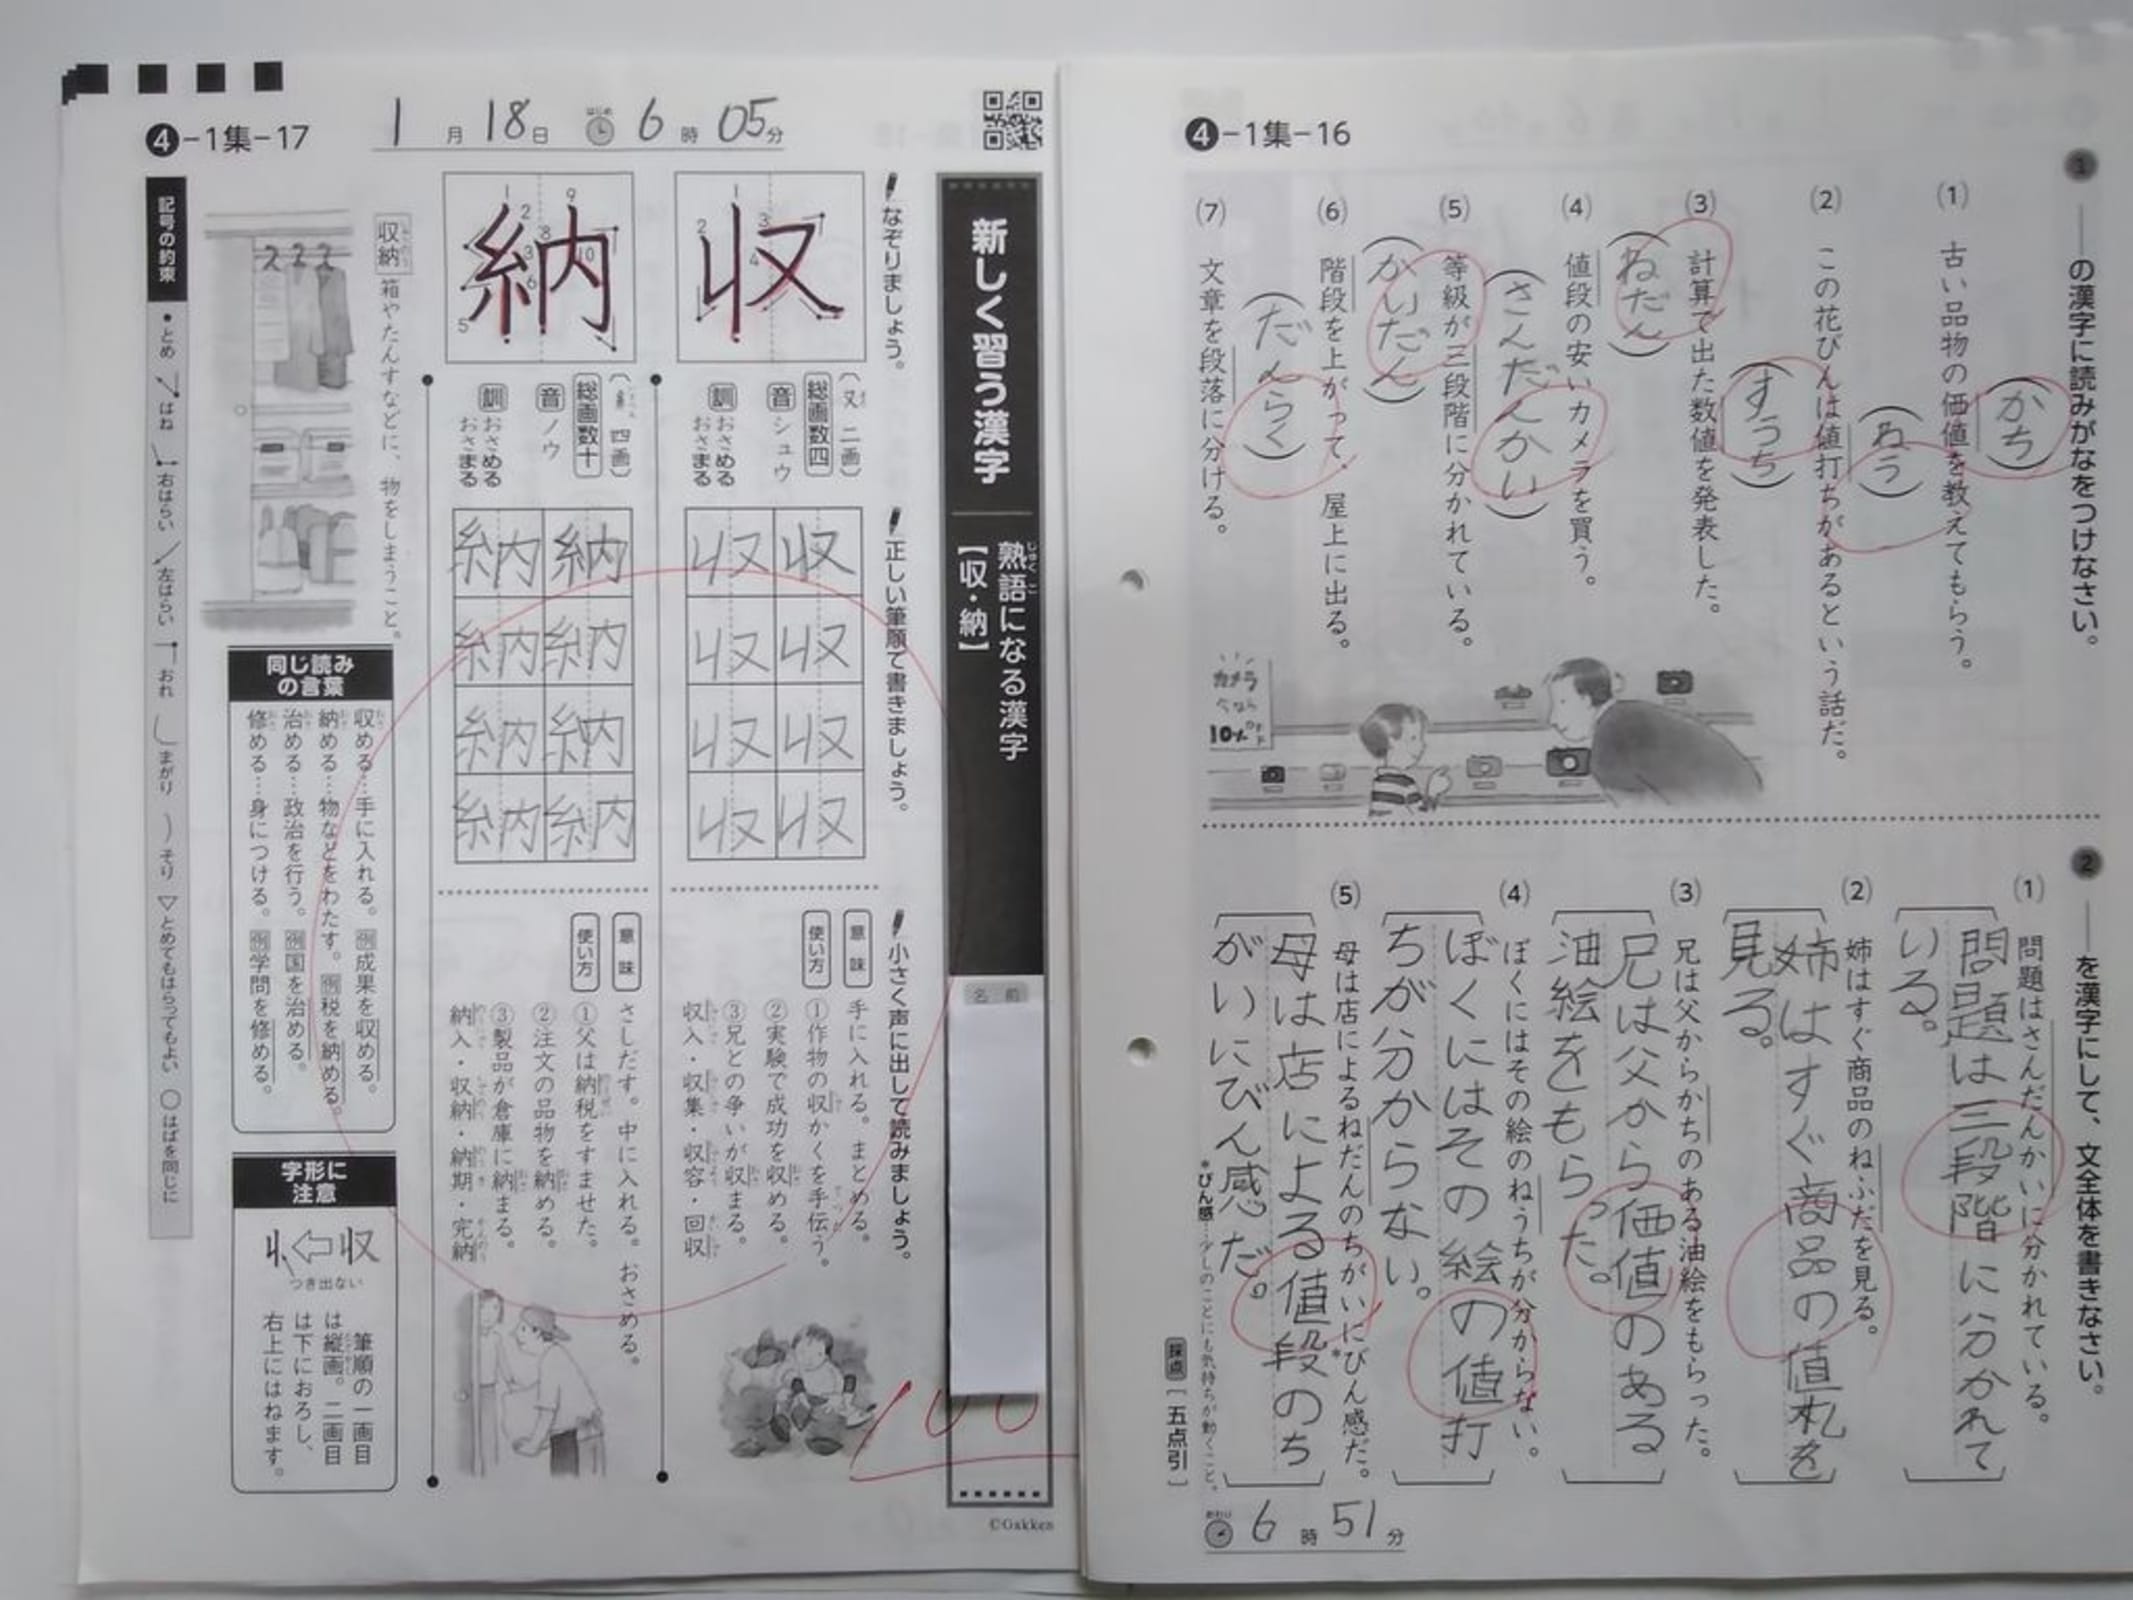 4-1集-16
1 ——の漢字に読みがなをつけなさい。
(1) 古い品物の価値を教えてもらう。
(かち)
(2) この花びんは値打ちがあるという話だ。
(ねう)
(3) 計算で出た数値を発表した。
(すうち)
(4) 値段の安いカメラを買う。
(ねだん)
(5) 等級が三段階に分かれている。
(さんだんかい)
(6) 階段を上がって、屋上に出る。
(かいだん)
(7) 文章を段落に分ける。
(だんらく)
カメラ
今なら
10%
2 ——を漢字にして、文全体を書きなさい。
(1) 問題はさんだんかいに分かれている。
問題は三段階に分かれて
いる。
(2) 姉はすぐ商品のねふだを見る。
姉はすぐ商品の値札を
見る。
(3) 兄は父からかちのある油絵をもらった。
兄は父から価値のある
油絵をもらった。
(4) ぼくにはその絵のねうちが分からない。
ぼくにはその絵の値打
ちが分からない。
(5) 母は店によるねだんのちがいにびん感だ。
母は店による値段のち
がいにびん感だ。
*びん感…少しのことにも気持ちが動くこと。
採点〔五点引〕
おわり 6時51分
4-1集-17
1月18日 はじめ 6時05分
新しく習う漢字
熟語になる漢字
【収・納】
じゅくご
名前
100
©Gakken
なぞりましょう。
正しい筆順で書きましょう。
小さく声に出して読みましょう。
収
(又 二画)
総画数四
音 シュウ
訓 おさめる
おさまる
収 収
収 収
収 収
収 収
意味 手に入れる。まとめる。
使い方 ①作物の収かくを手伝う。
②実験で成功を収める。
③兄との争いが収まる。
収入・収集・収容・回収
納
(糸 四画)
総画数十
音 ノウ
訓 おさめる
おさまる
納 納
納 納
納 納
納 納
意味 さしだす。中に入れる。おさめる。
使い方 ①父は納税をすませた。
②注文の品物を納める。
③製品が倉庫に納まる。
納入・収納・納期・完納
収納 箱やたんすなどに、物をしまうこと。
同じ読み
の言葉
収める…手に入れる。例成果を収める。
納める…物などをわたす。例税を納める。
治める…政治を行う。例国を治める。
修める…身につける。例学問を修める。
字形に
注意
収
つき出ない
筆順の一画目
は縦画。二画目
は下におろし、
右上にはねます。
記号の約束 •とめ はね 右はらい 左はらい おれ まがり そり ▽とめてもはらってもよい ○はばを同じに